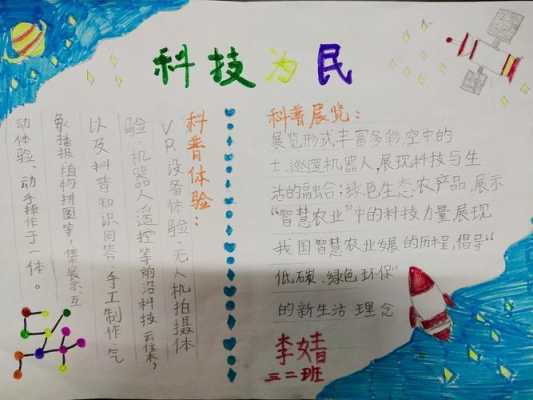 科技为民
科普体验：
VR设备体验.无人机拍摄体
验.机器人遥控等前沿科技
以及科普知识问答.手工制作.气
象播报.植物拼图等,集展示.互
动体验、动手操作于一体。
科普展览：
展览形式丰富多彩,空中的
士、巡逻机器人,展现科技与生
活的融合;绿色生态农产品,展示
“智慧农业”中的科技力量展现
我国智慧农业发展的历程,倡导“
低碳、绿色环保”
的新生活理念
李婧
三二班